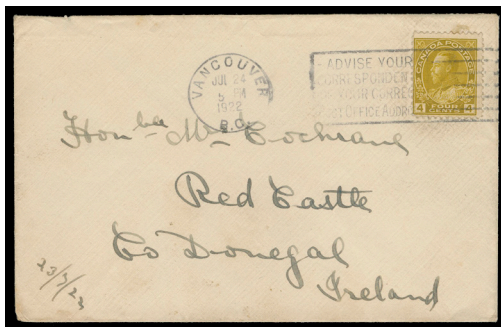 VANCOUVER
JUL 24
5 PM
1922
B.C.
ADVISE YOUR
CORRESPONDEN
CORRE
OFFICE ADDR
CANADA POSTAGE
4 FOUR CENTS 4
Honble Mrs Cochrane
Red Castle
Co Donegal
Ireland
23/7/22